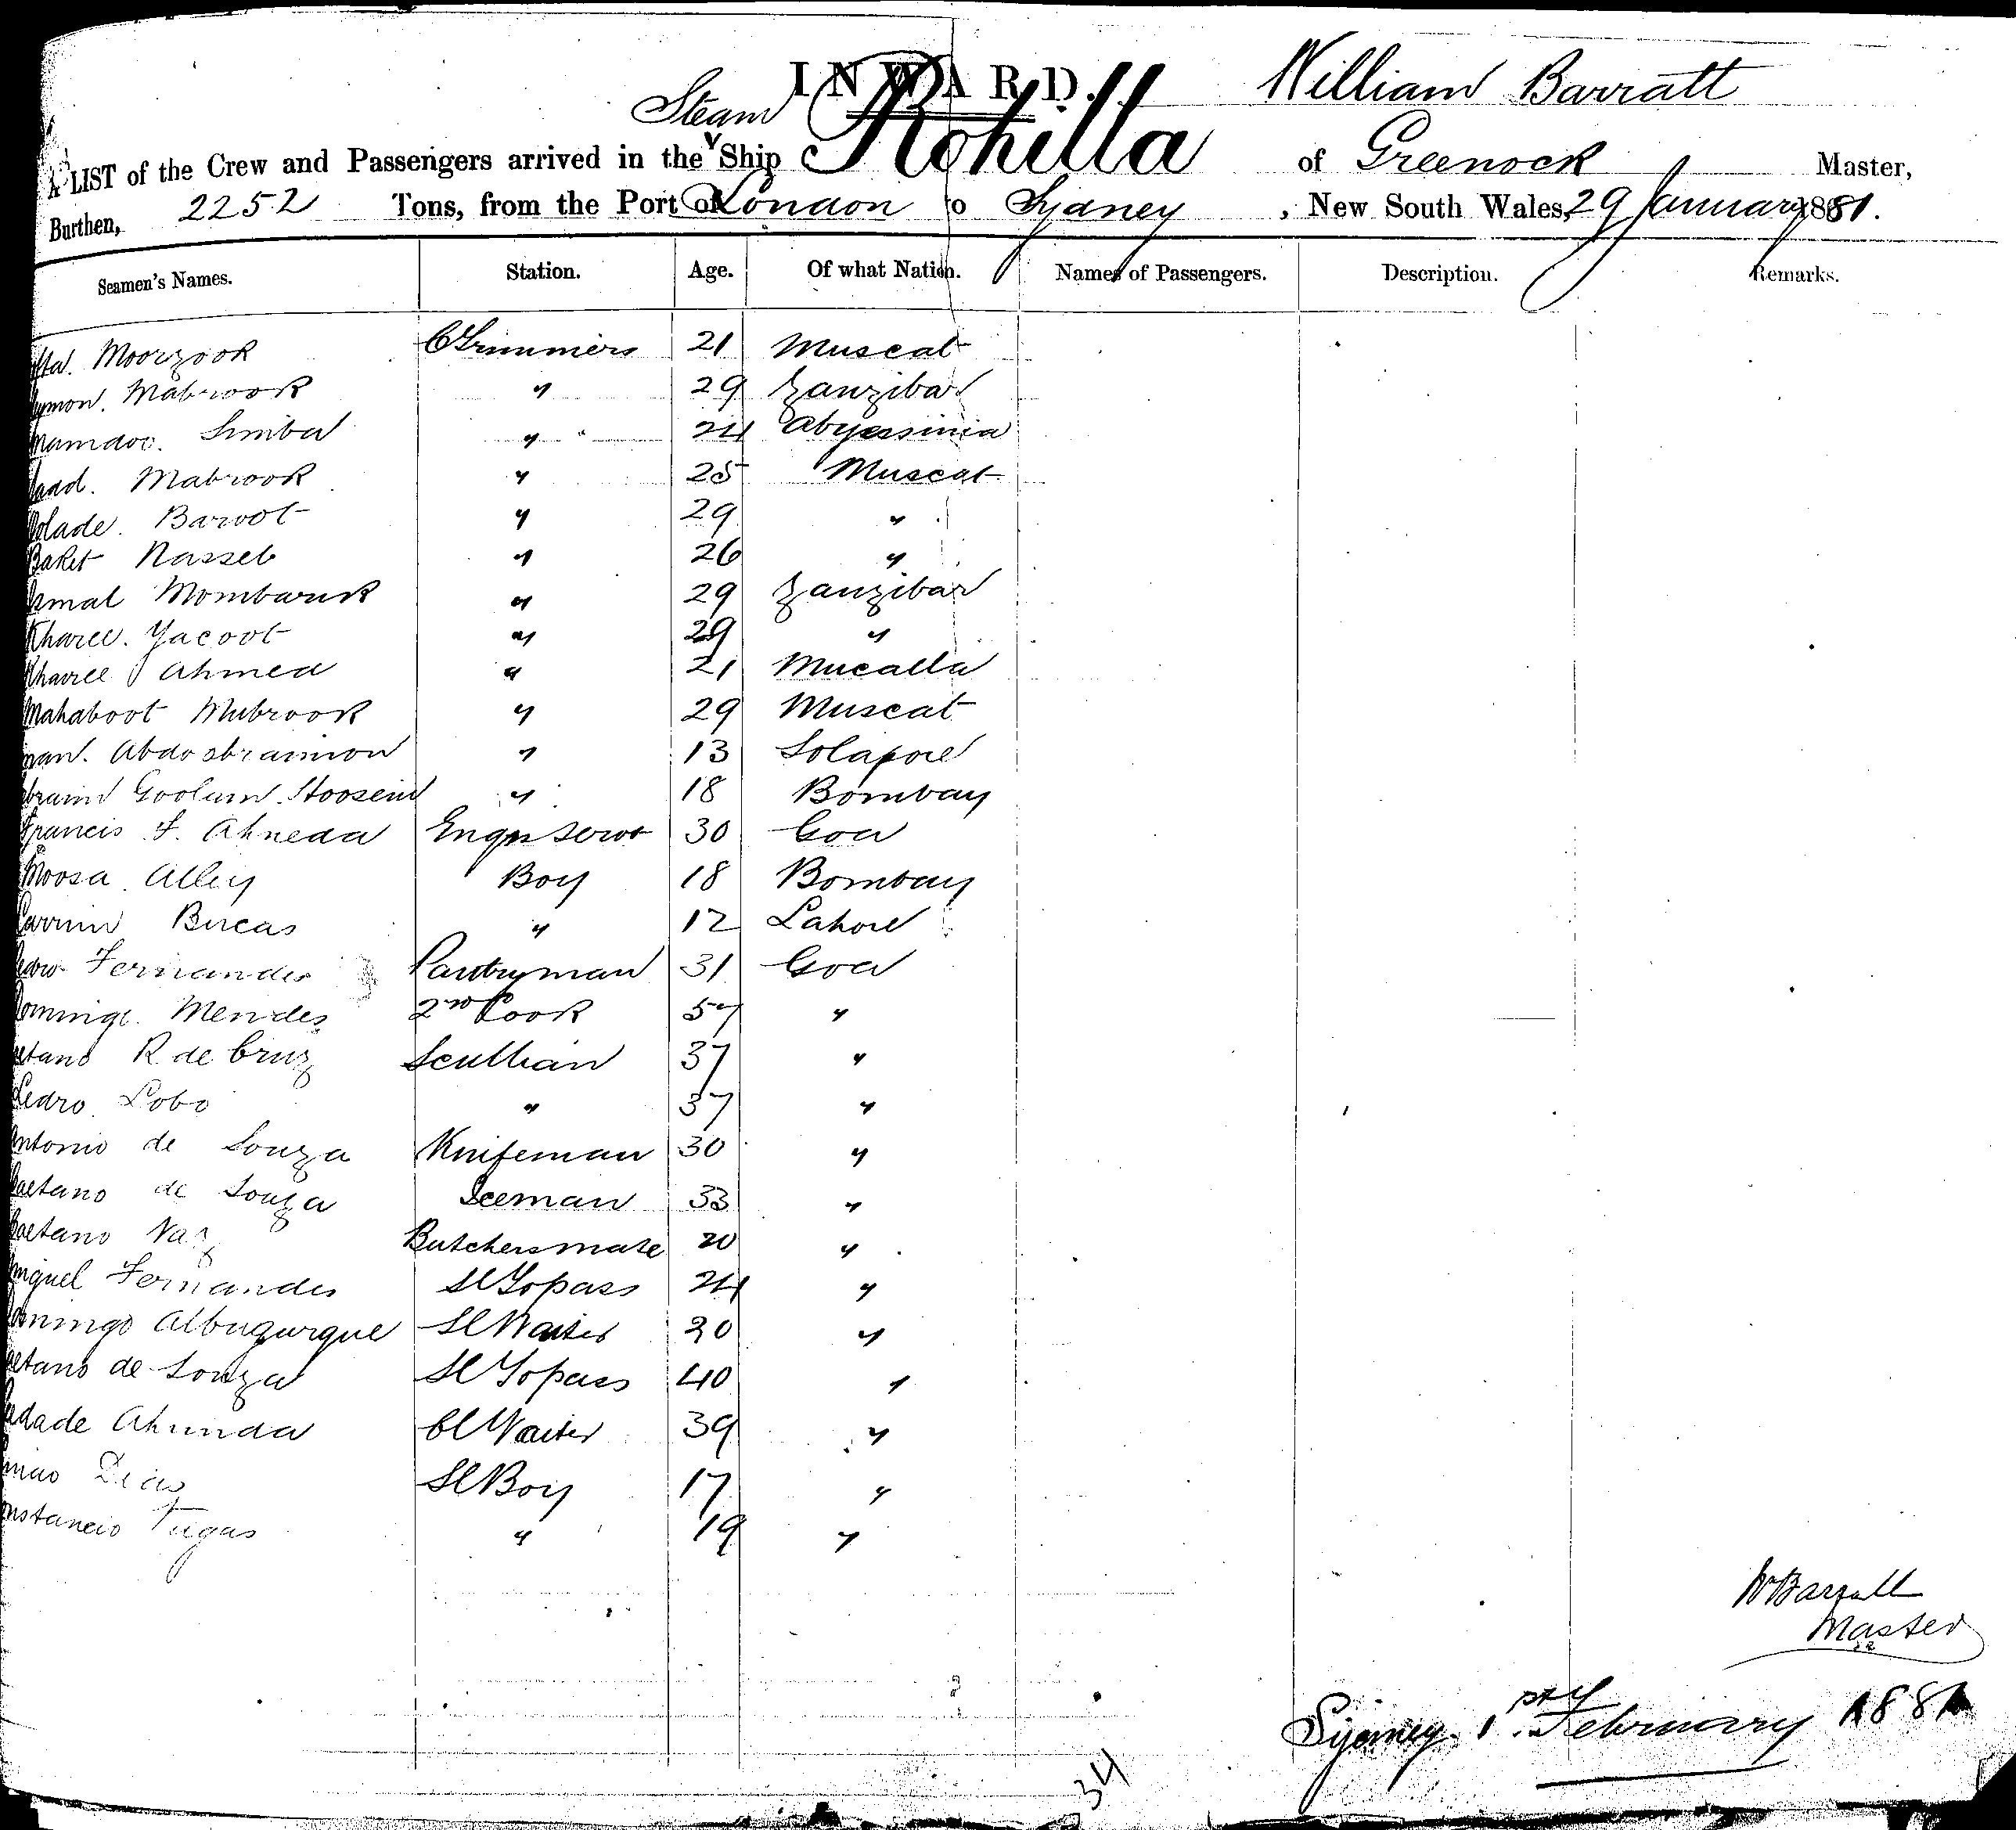 INWARD.
William Barratt
Steam
A LIST of the Crew and Passengers arrived in the Ship Rohilla of Greenock Master,
Burthen, 2252 Tons, from the Port of London to Sydney, New South Wales, 29 January 1881.
Seamen's Names. Station. Age. Of what Nation. Names of Passengers. Description. Remarks.
Moorzook C Trimmers 21 Muscat
Mabrook " 29 Zanzibar
Simba " 24 Abyssinia
Mabrook " 25 Muscat
Baroot " 29 "
Baket Nasseb " 26 "
Mombaruk " 29 Zanzibar
Kharee. Yacoot " 29 "
Kharee Ahmed " 21 Mucalla
Mahaboot Mubrook " 29 Muscat
" 13 Solapore
Goolum Hoosein " 18 Bombay
Francis F. Almeda Engrs Servt 30 Goa
Moosa Alley Boy 18 Bombay
Bucas " 12 Lahore
Fernandes Pantryman 31 Goa
Mendes 2nd Cook 57 "
etano R de Cruz Scullian 37 "
Pedro Lobo " 37 "
Antonio de Souza Knifeman 30 "
Caetano de Souza Iceman 33 "
Caetano Vaz Butchersmate 20 "
Miguel Fernandes Sl Topass 24 "
omingo Albuqurque Sl Waiter 20 "
etano de Souza Sl Topass 40 "
Cl Waiter 39 "
Dias Sl Boy 17 "
onstancio " 19 "
W Barratt
Master
Sydney. 1st February 1881
34